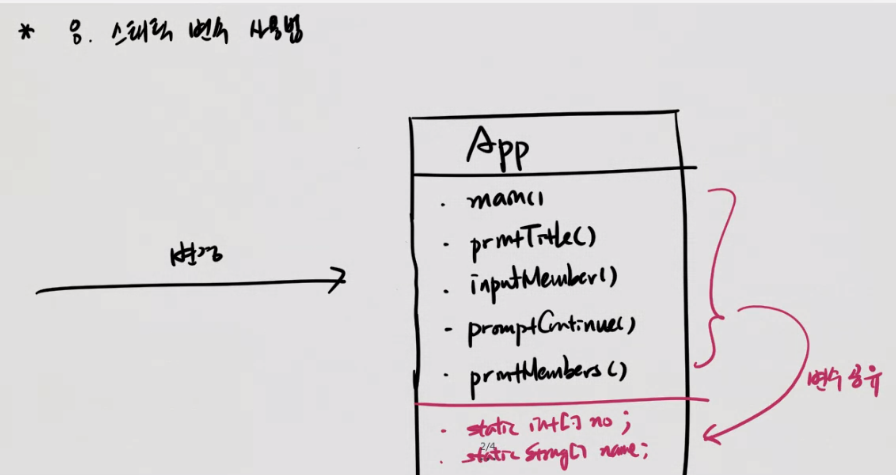 * 응. 스태틱 변수 사용법
변경
App
· main()
· printTitle()
· inputMember()
- promptContinue()
· printMembers()
변수 공유
· static int[] no ;
2/4
. static String[] name;